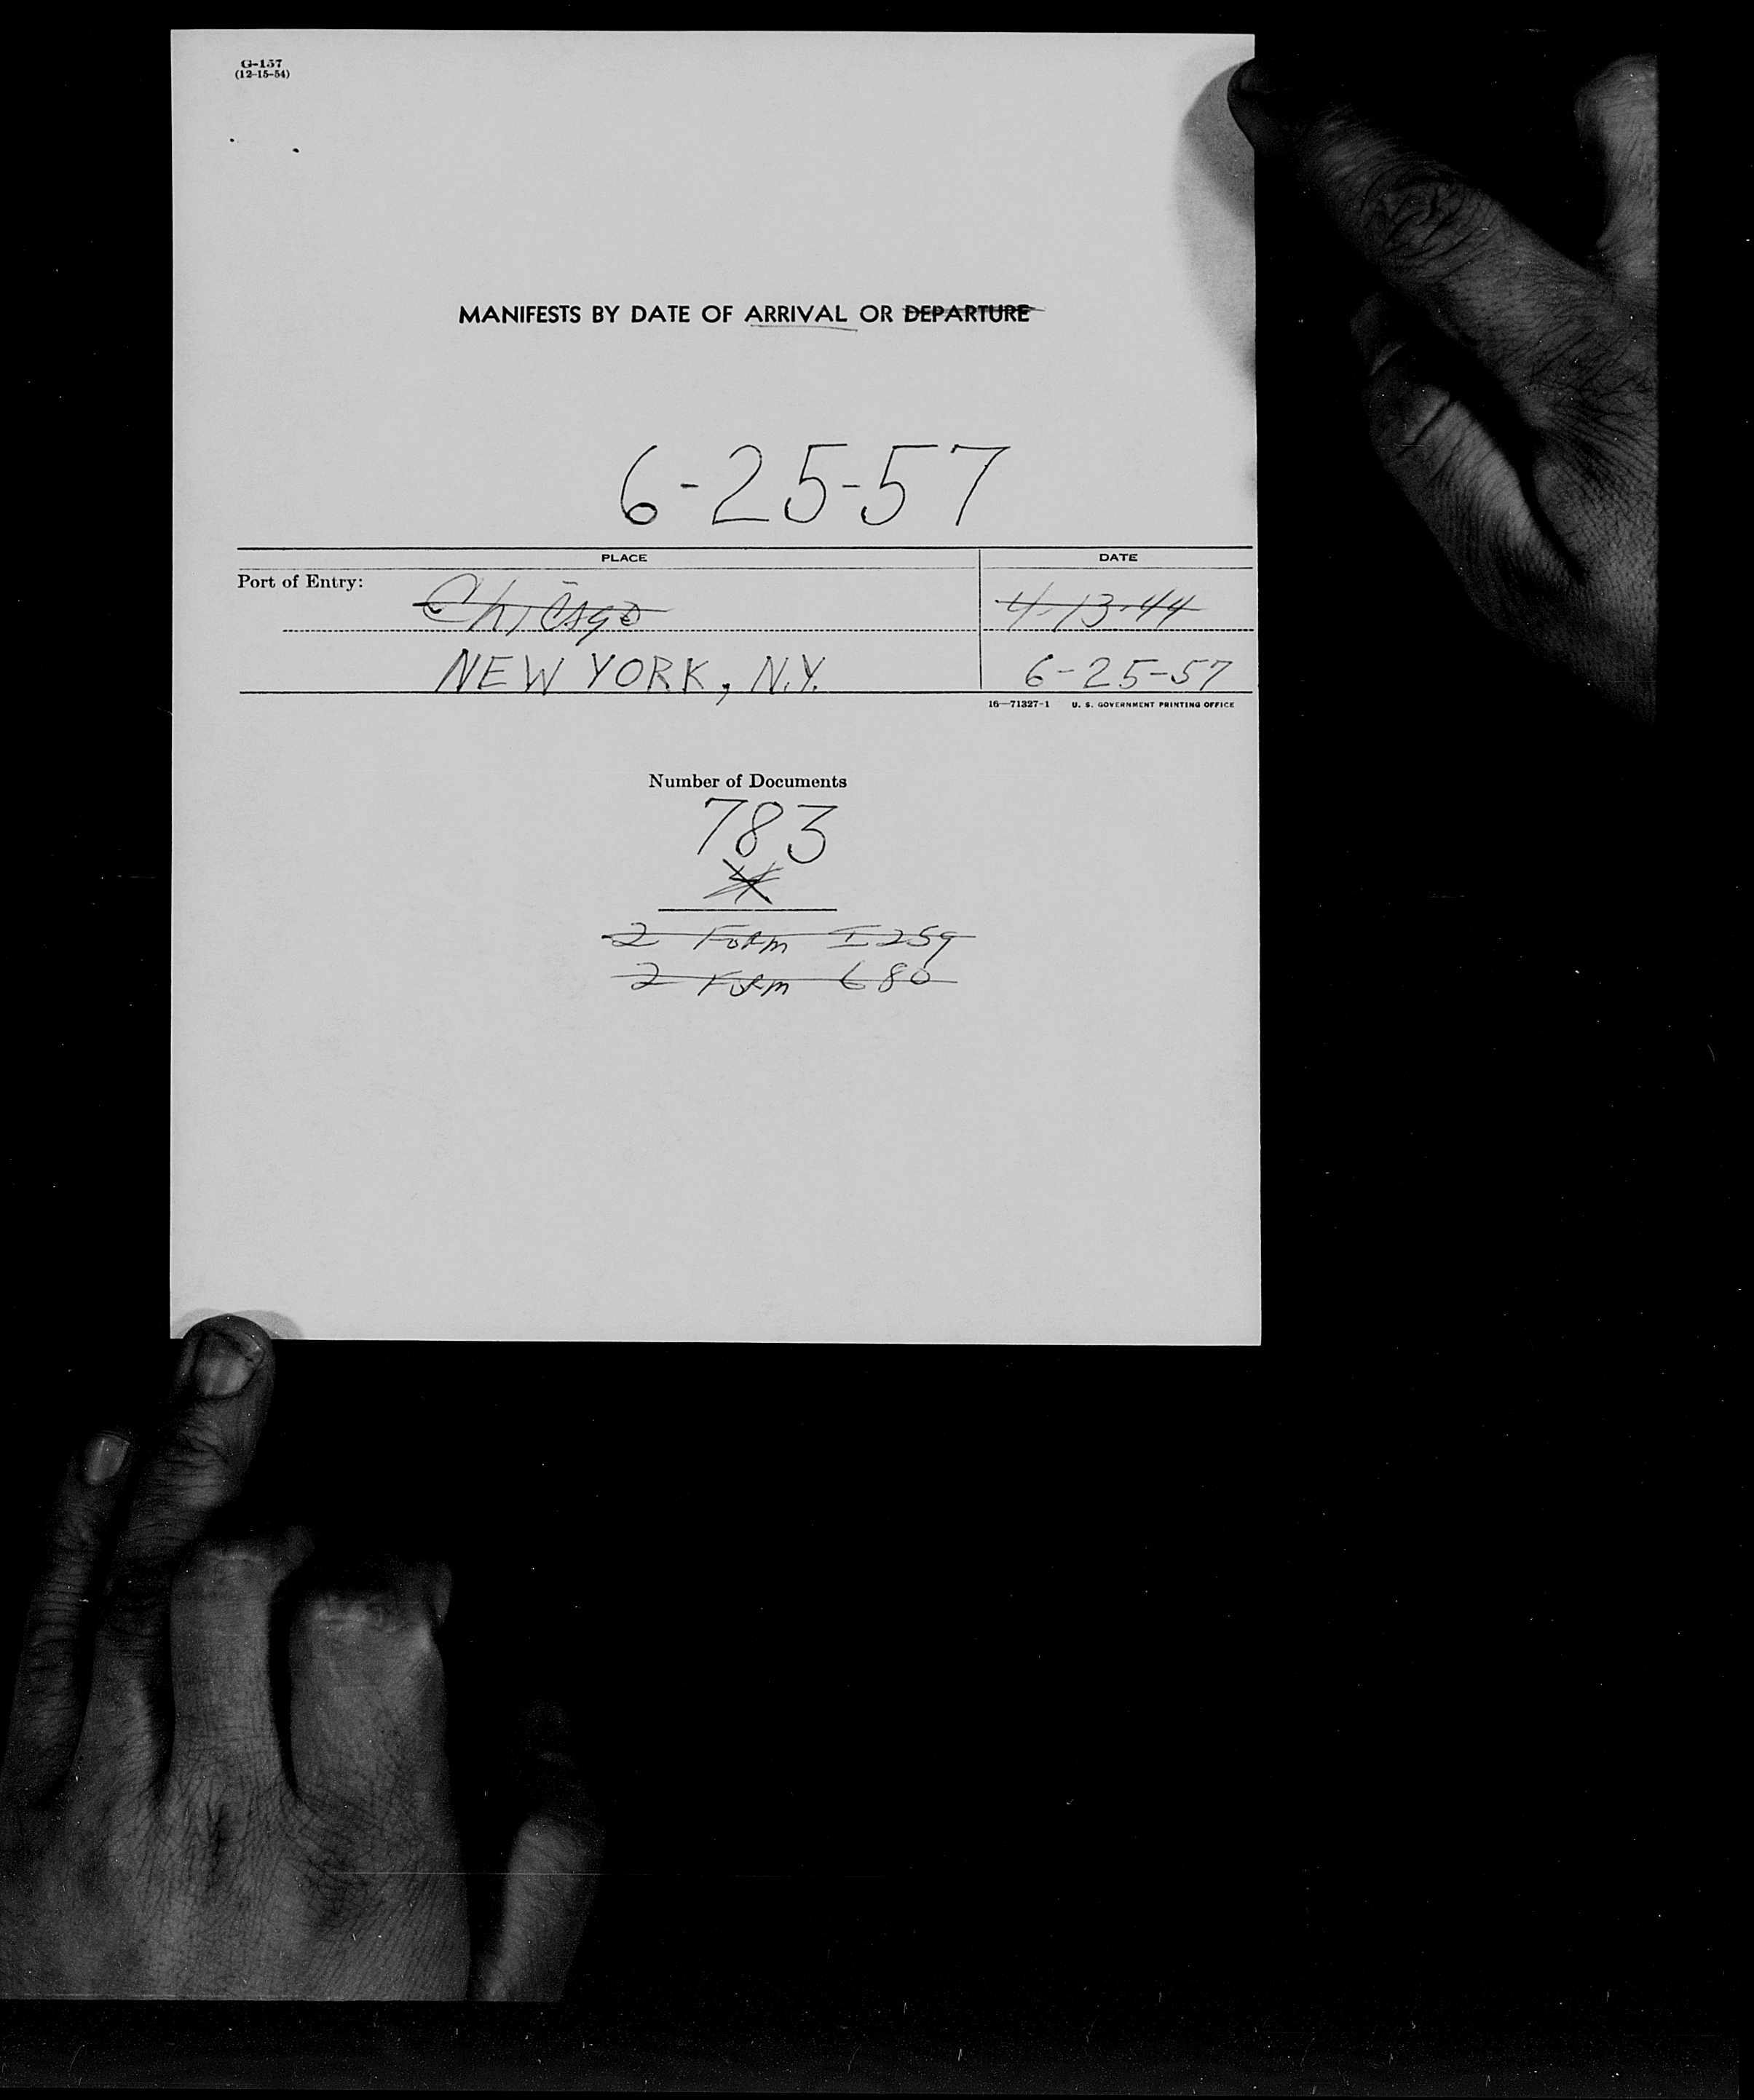 G-157
(12-15-54)
MANIFESTS BY DATE OF ARRIVAL OR DEPARTURE
6-25-57
PLACE DATE
Port of Entry: Chicago 4-13-44
NEW YORK, N.Y. 6-25-57
16—71327-1 U. S. GOVERNMENT PRINTING OFFICE
Number of Documents
783
4
2 Form I259
2 Form 680